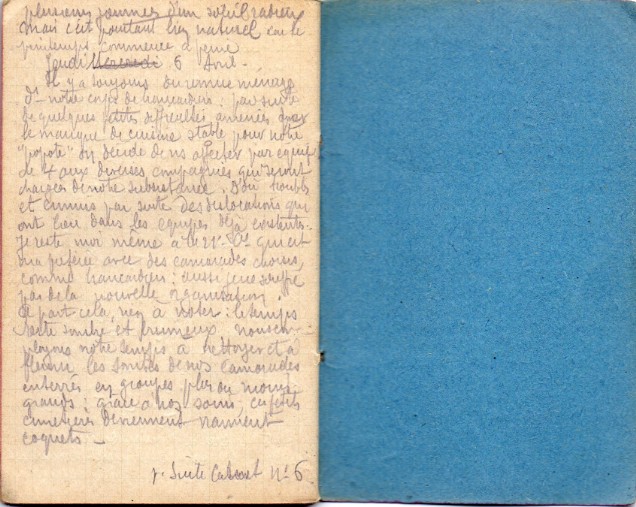 plusieurs journées d'un soleil radieux
mais c'est pourtant bien naturel car le
printemps commence à peine
Jeudi Mercredi 6 Avril -
Il y a toujours du remue ménage
ds notre corps de brancardiers : par suite
de quelques petites difficultés amenées par
le manque de cuisine stable pour notre
"popote" on décide de ns affecter par équipe
de 4 aux diverses compagnies qui seront
chargées de notre subsistance. D'où troubles
et ennuis par suite des dislocations qui
ont lieu dans les équipes déjà existantes -
Je reste moi même à la Cie qui est
ma préférée avec des camarades choisis,
comme brancardiers : aussi je ne souffre
pas de la nouvelle organisation.
A part cela, rien à noter : le temps
reste sombre et brumeux nous em-
ployons notre temps à nettoyer et à
fleurir les tombes de nos camarades
enterrés en groupes plus ou moins
grands : grâce à nos soins, ces petits
cimetières deviennent vraiment
coquets -
Suite Carnet N° 6